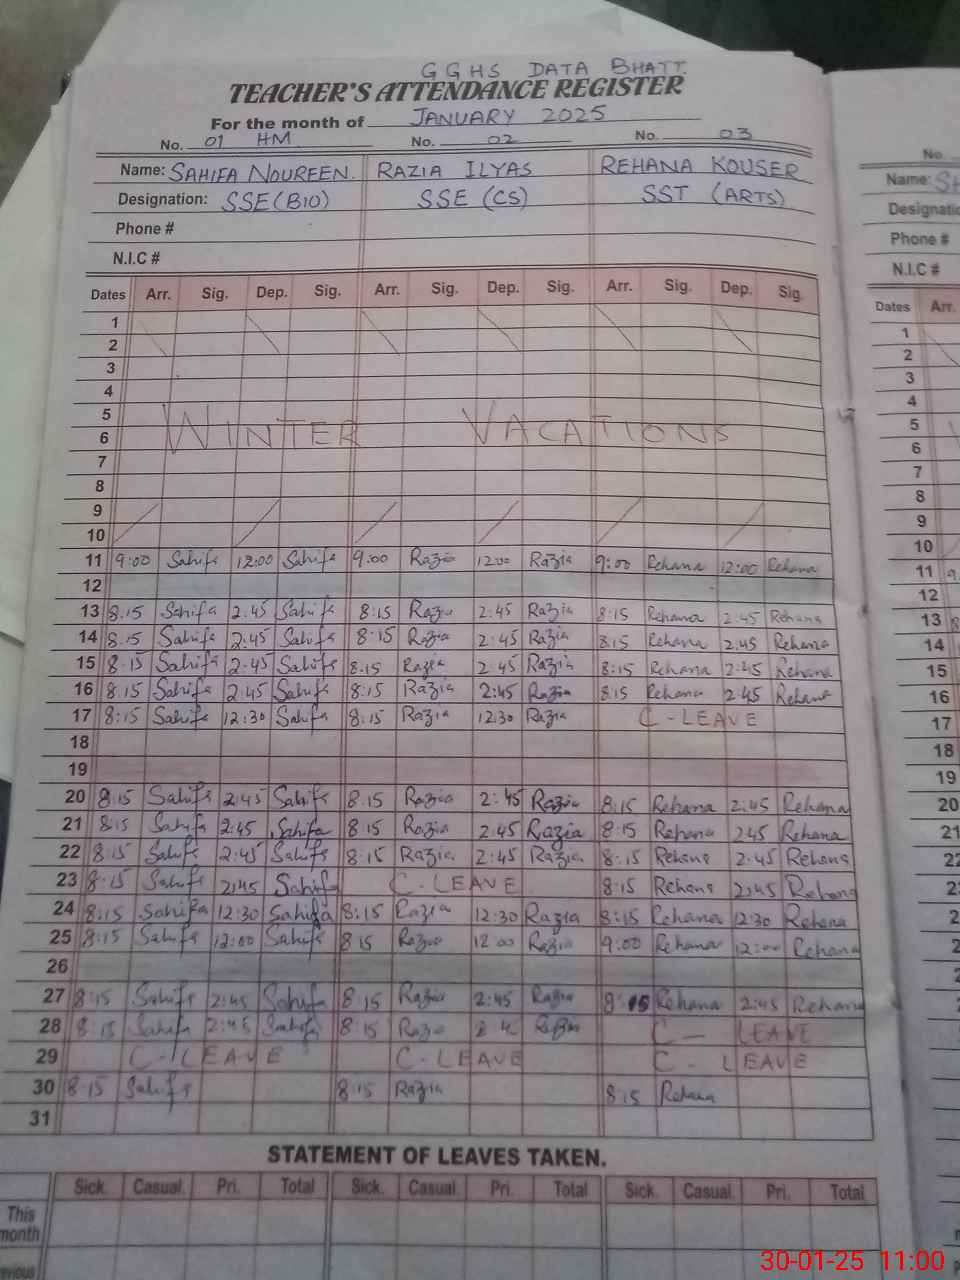 GGHS DATA BHATT.
TEACHER'S ATTENDANCE REGISTER
For the month of JANUARY 2025
No. 01 HM No. 02 No. 03
Name: SAHIFA NOUREEN. RAZIA ILYAS REHANA KOUSER
Designation: SSE(BIO) SSE (CS) SST (ARTS)
Phone #
N.I.C #
Dates Arr. Sig. Dep. Sig. Arr. Sig. Dep. Sig. Arr. Sig. Dep. Sig.
1
2
3
4
5
6 WINTER VACATIONS
7
8
9
10
11 9:00 Sahifa 12:00 Sahifa 9:00 Razia 12:00 Razia 9:00 Rehana 12:00 Rehana
12
13 8:15 Sahifa 2:45 Sahifa 8:15 Razia 2:45 Razia 8:15 Rehana 2:45 Rehana
14 8:15 Sahifa 2:45 Sahifa 8:15 Razia 2:45 Razia 8:15 Rehana 2:45 Rehana
15 8:15 Sahifa 2:45 Sahifa 8:15 Razia 2:45 Razia 8:15 Rehana 2:45 Rehana
16 8:15 Sahifa 2:45 Sahifa 8:15 Razia 2:45 Razia 8:15 Rehana 2:45 Rehana
17 8:15 Sahifa 12:30 Sahifa 8:15 Razia 12:30 Razia C-LEAVE
18
19
20 8:15 Sahifa 2:45 Sahifa 8:15 Razia 2:45 Razia 8:15 Rehana 2:45 Rehana
21 8:15 Sahifa 2:45 Sahifa 8:15 Razia 2:45 Razia 8:15 Rehana 2:45 Rehana
22 8:15 Sahifa 2:45 Sahifa 8:15 Razia 2:45 Razia 8:15 Rehana 2:45 Rehana
23 8:15 Sahifa 2:45 Sahifa C-LEAVE 8:15 Rehana 2:45 Rehana
24 8:15 Sahifa 12:30 Sahifa 8:15 Razia 12:30 Razia 8:15 Rehana 12:30 Rehana
25 8:15 Sahifa 12:00 Sahifa 8:15 Razia 12:00 Razia 9:00 Rehana 12:00 Rehana
26
27 8:15 Sahifa 2:45 Sahifa 8:15 Razia 2:45 Razia 8:15 Rehana 2:45 Rehana
28 8:15 Sahifa 2:45 Sahifa 8:15 Razia Razia C- LEAVE
29 C-LEAVE C-LEAVE C-LEAVE
30 8:15 Sahifa 8:15 Razia 8:15 Rehana
31
STATEMENT OF LEAVES TAKEN.
Sick. Casual. Pri. Total Sick. Casual. Pri. Total Sick. Casual. Pri. Total
This
month
No.
Name: SH
Phone #
N.I.C #
Dates Arr.
1
2
3
4
5
6
7
8
9
10
11
12
13
14
15
16
17
18
19
20
21
30-01-25 11:00